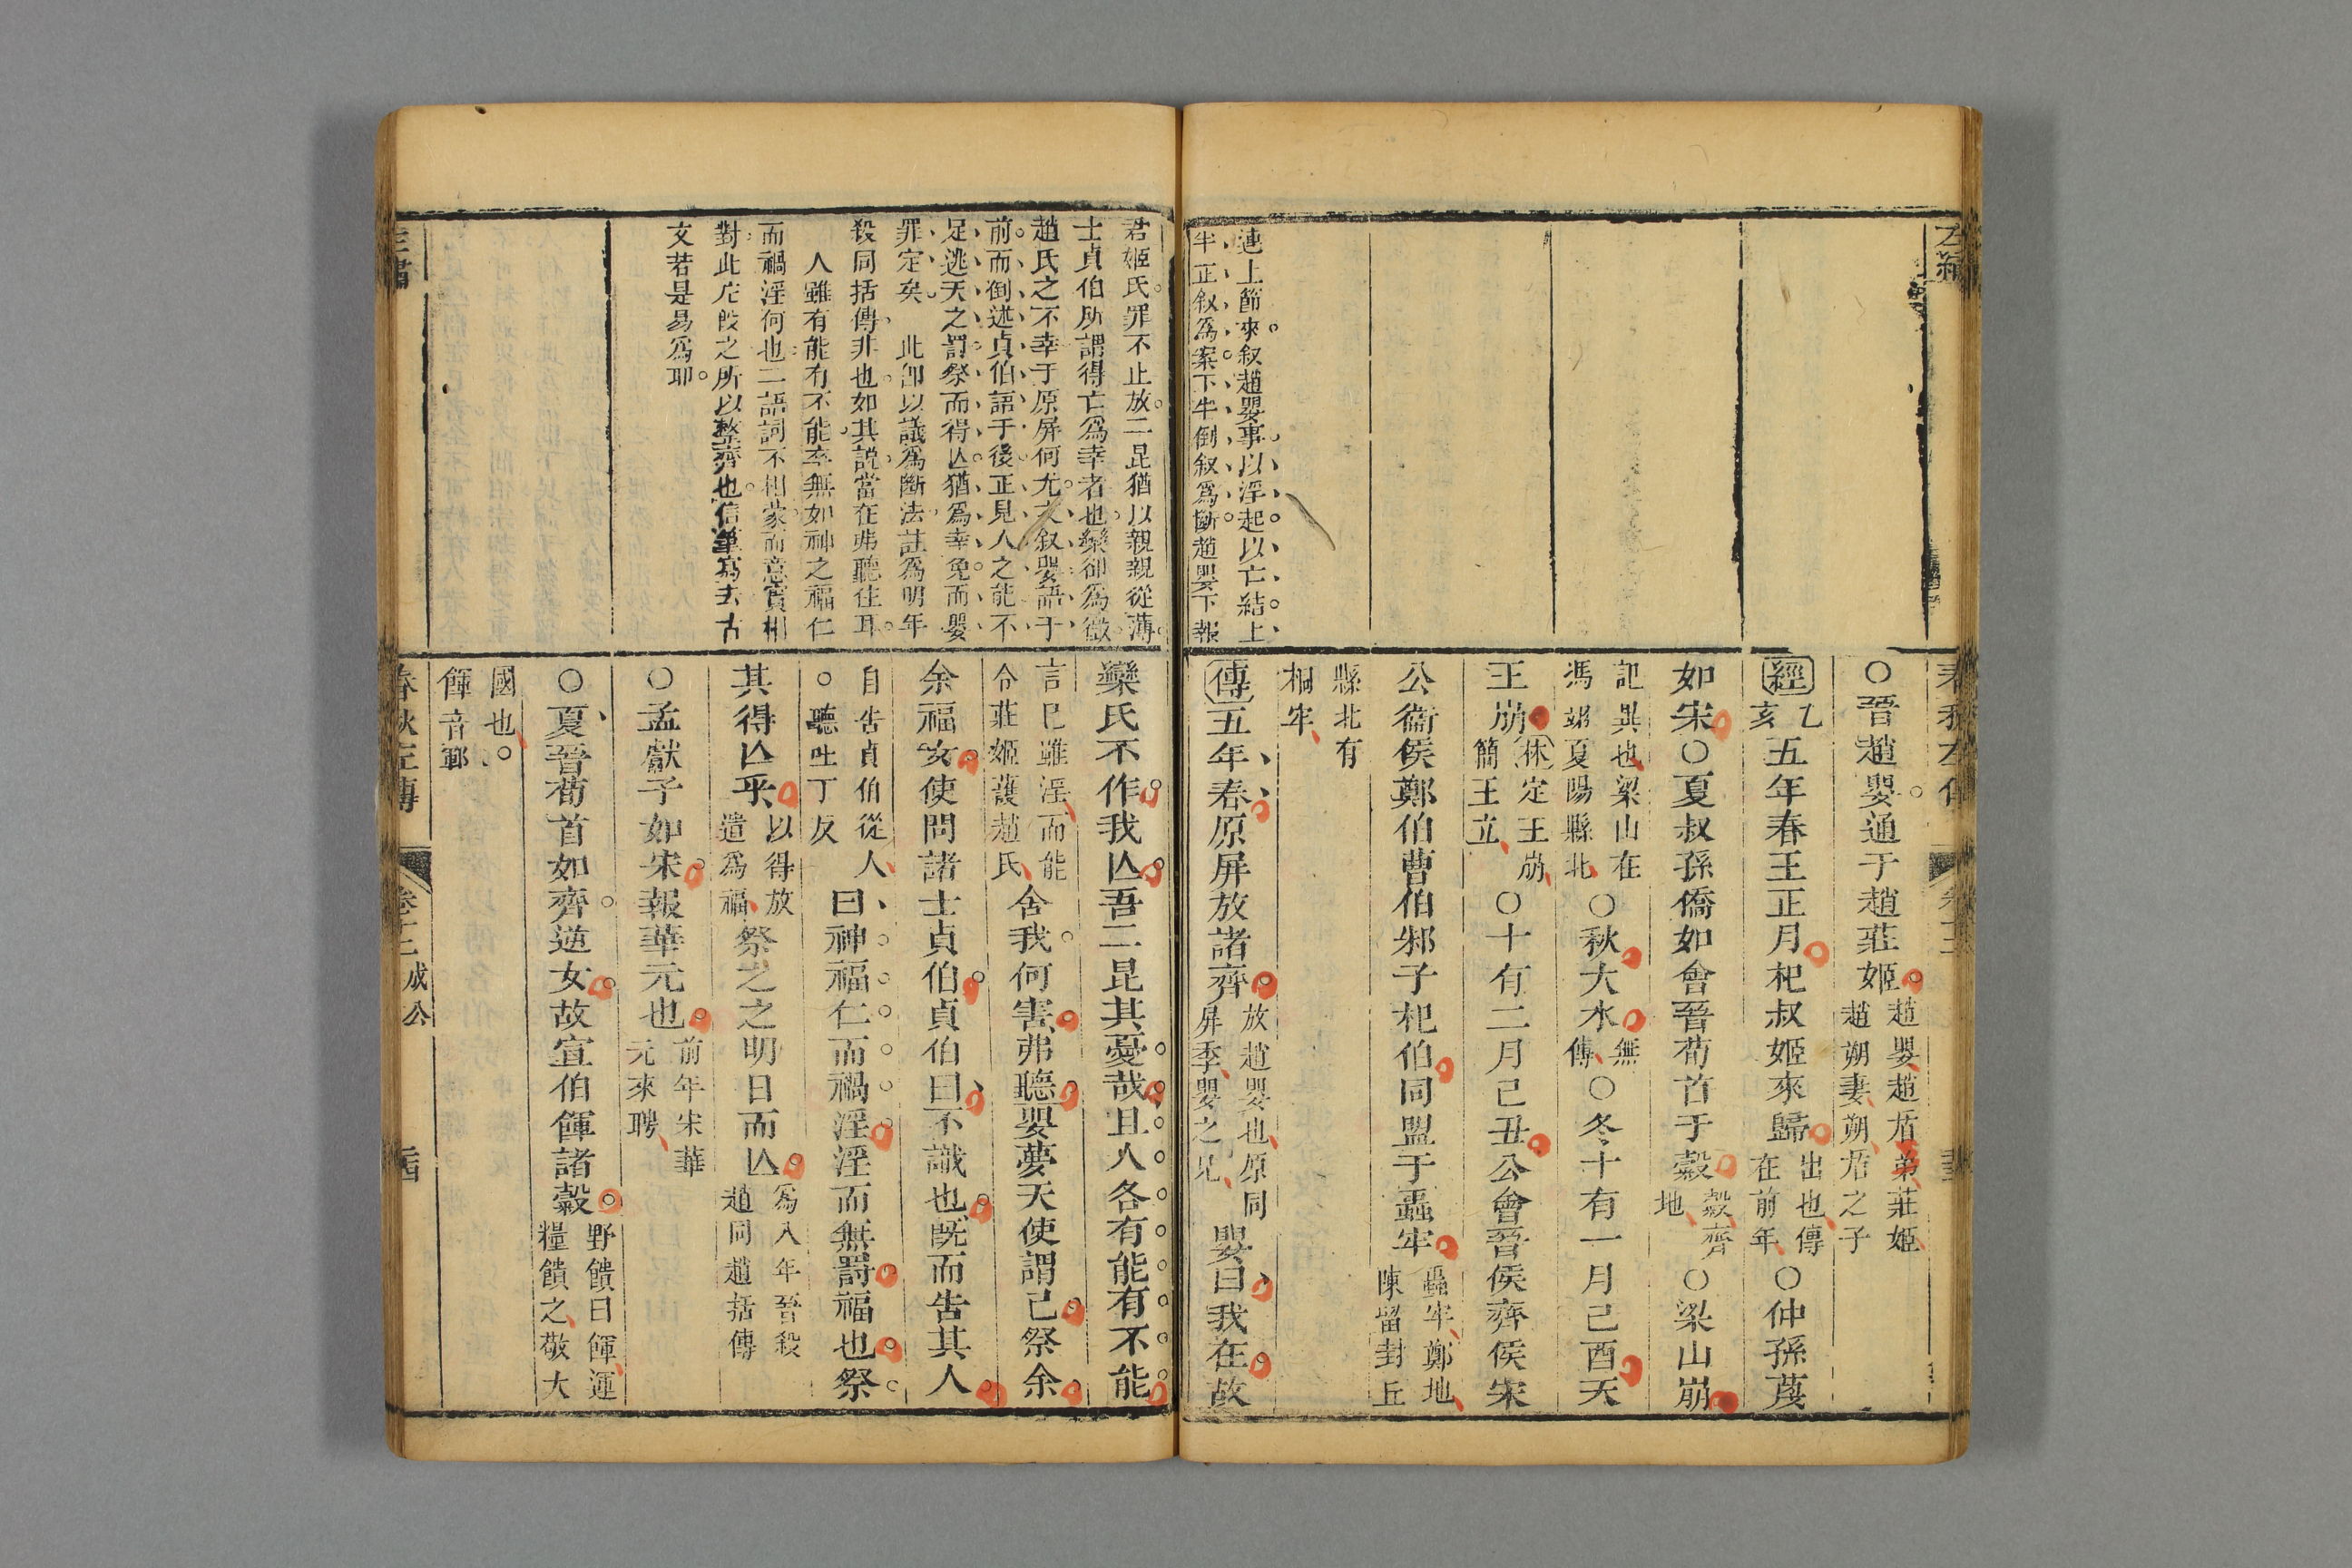 連上節來叙趙嬰事以淫起以亡結上
半正叙爲案下半倒叙爲斷趙嬰下報
春秋左傳
○晉趙嬰通于趙莊姬
趙嬰趙盾弟莊姬
趙朔妻朔盾之子
經
乙
亥
五年春王正月杞叔姬來歸
出也傳
在前年
○仲孫蔑
如宋○夏叔孫僑如會晉荀首于穀
穀齊
地
○梁山崩
記異也梁山在
馮翊夏陽縣北
○秋大水
無
傳
○冬十有一月己酉天
王崩
林定王崩
簡王立
○十有二月己丑公會晉侯齊侯宋
公衞侯鄭伯曹伯邾子杞伯同盟于蟲牢
蟲牢鄭地
陳留封丘
縣北有
桐牢
傳五年春原屏放諸齊
放趙嬰也原同
屏季嬰之兄
嬰曰我在故
君姬氏罪不止放二昆猶以親親從薄
士貞伯所謂得亡爲幸者也欒卻爲徵
趙氏之不幸于原屏何尤文叙嬰語于
前而倒述貞伯語于後正見人之能不
足逃天之罰祭而得亾猶爲幸免而嬰
罪定矣 此卽以議爲斷法註爲明年
殺同括傳非也如其説當在弗聽住耳
人雖有能有不能卒無如神之福仁
而禍淫何也二語詞不相蒙而意實相
對此左叚之所以整齊也信筆寫去古
文若是易爲耶
欒氏不作我亾吾二昆其憂哉且人各有能有不能
言巳雖淫而能
令莊姬護趙氏
舍我何害弗聽嬰夢天使謂己祭余
余福女使問諸士貞伯貞伯曰不識也既而告其人
自告貞伯從人
○聽吐丁反
曰神福仁而禍淫淫而無罰福也祭
其得亾乎
以得放
遣爲福
祭之之明日而亾
爲八年晉殺
趙同趙括傳
○孟獻子如宋報華元也
前年宋華
元來聘
○夏晉荀首如齊逆女故宣伯餫諸穀
野饋曰餫運
糧饋之敬大
國也
餫音鄆
春秋左傳
卷十二
成公